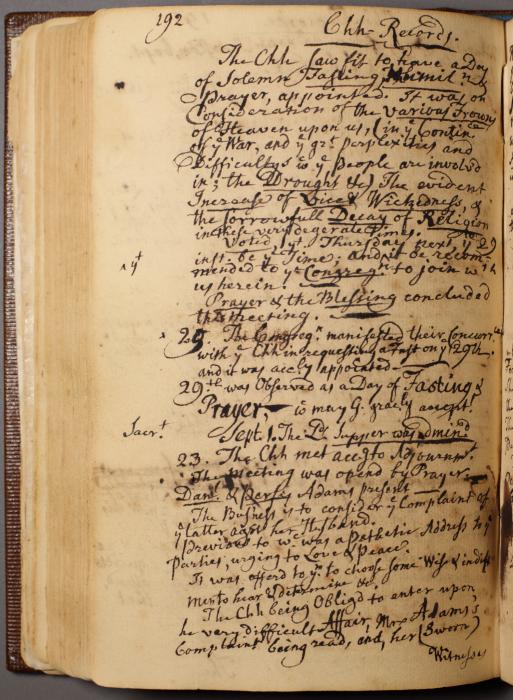 192
Chh Records.
The Chh saw fit to have a Day
of Solemn Fasting, Humil.n &
Prayer, appointed. It was on
Consideration of the various Frowns
of Heaven upon us, (in ye Contin.ce
of ye War, and ye grt perplexities and
Difficultys wc ye people are involvd
in; the Drought &c) The evident
Increase of Vice & Wickedness, &
the sorrowfull Decay of Religion
in these very degenerate Times.
Voted yt Thursday next, ye 29
inst. be ye Time; and it be recom-
yt
mended to ye Congregn to join wth
us herein.
Prayer & the Blessing concluded
the meeting.
25. The Congregn manifested their Concurr.ce
with ye Chh in requesting a Fast on ye 29th.
and it was accy appointed.
29th was Observed as a Day of Fasting &
Prayer wc may G. gracy accept!
Sacrt
Sept. 1. The Ls Supper was admind
23. The Chh met accg to Adjournmt.
The Meeting was opend by Prayer.
Danl & Persis Adams present
The Business is to consider ye Complaint of
ye latter agst her Husband.
Previous to wc was a Pathetic Address to ye
Parties, urging to Love & Peace.
It was offerd to ym to choose some Wise & indiff
men to hear & determine &c
The Chh being Obligd to enter upon
he very difficult Affair, Mrs Adams's
Complaint being read, and, her (Sworn)
Witnesses